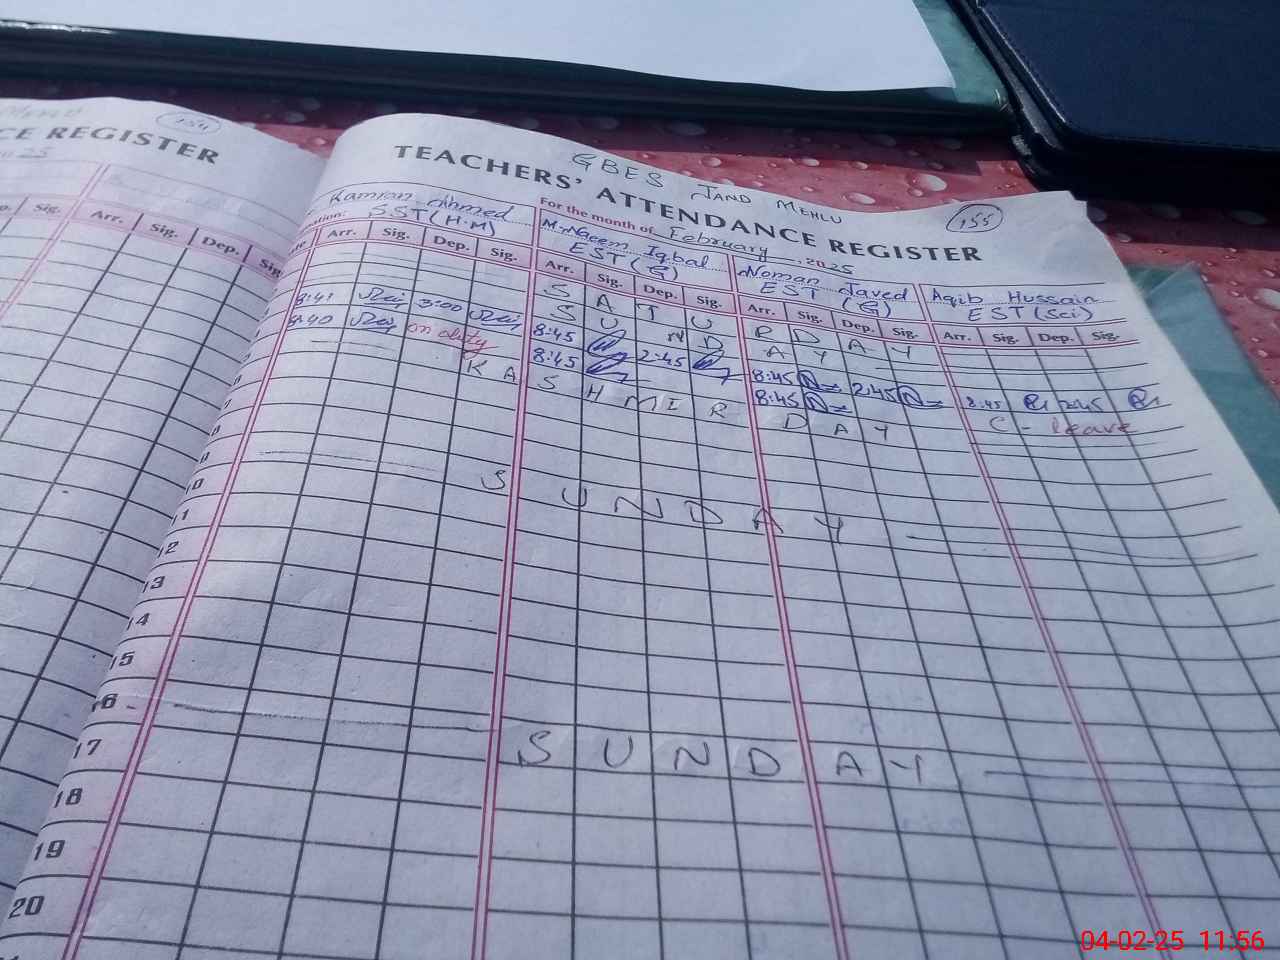 154
CE REGISTER
25
Sig.
Arr.
Sig.
Dep.
Sig.
GBES JAND MEHLU
155
TEACHERS' ATTENDANCE REGISTER
For the month of February, 2025
Kamran Ahmed
SST (H.M)
M. Naeem Iqbal
EST (G)
Noman Javed
EST (G)
Aqib Hussain
EST (Sci)
Arr. Sig. Dep. Sig. Arr. Sig. Dep. Sig. Arr. Sig. Dep. Sig. Arr. Sig. Dep. Sig.
SATURDAY
SUNDAY
8:41 3:00 8:45 2:45 8:45 2:45 8:45 2:45
8:40 on duty 8:45 8:45 C- leave
KASHMIR DAY
9
SUNDAY
10
11
12
13
14
15
16 SUNDAY
17
18
19
20
04-02-25 11:56